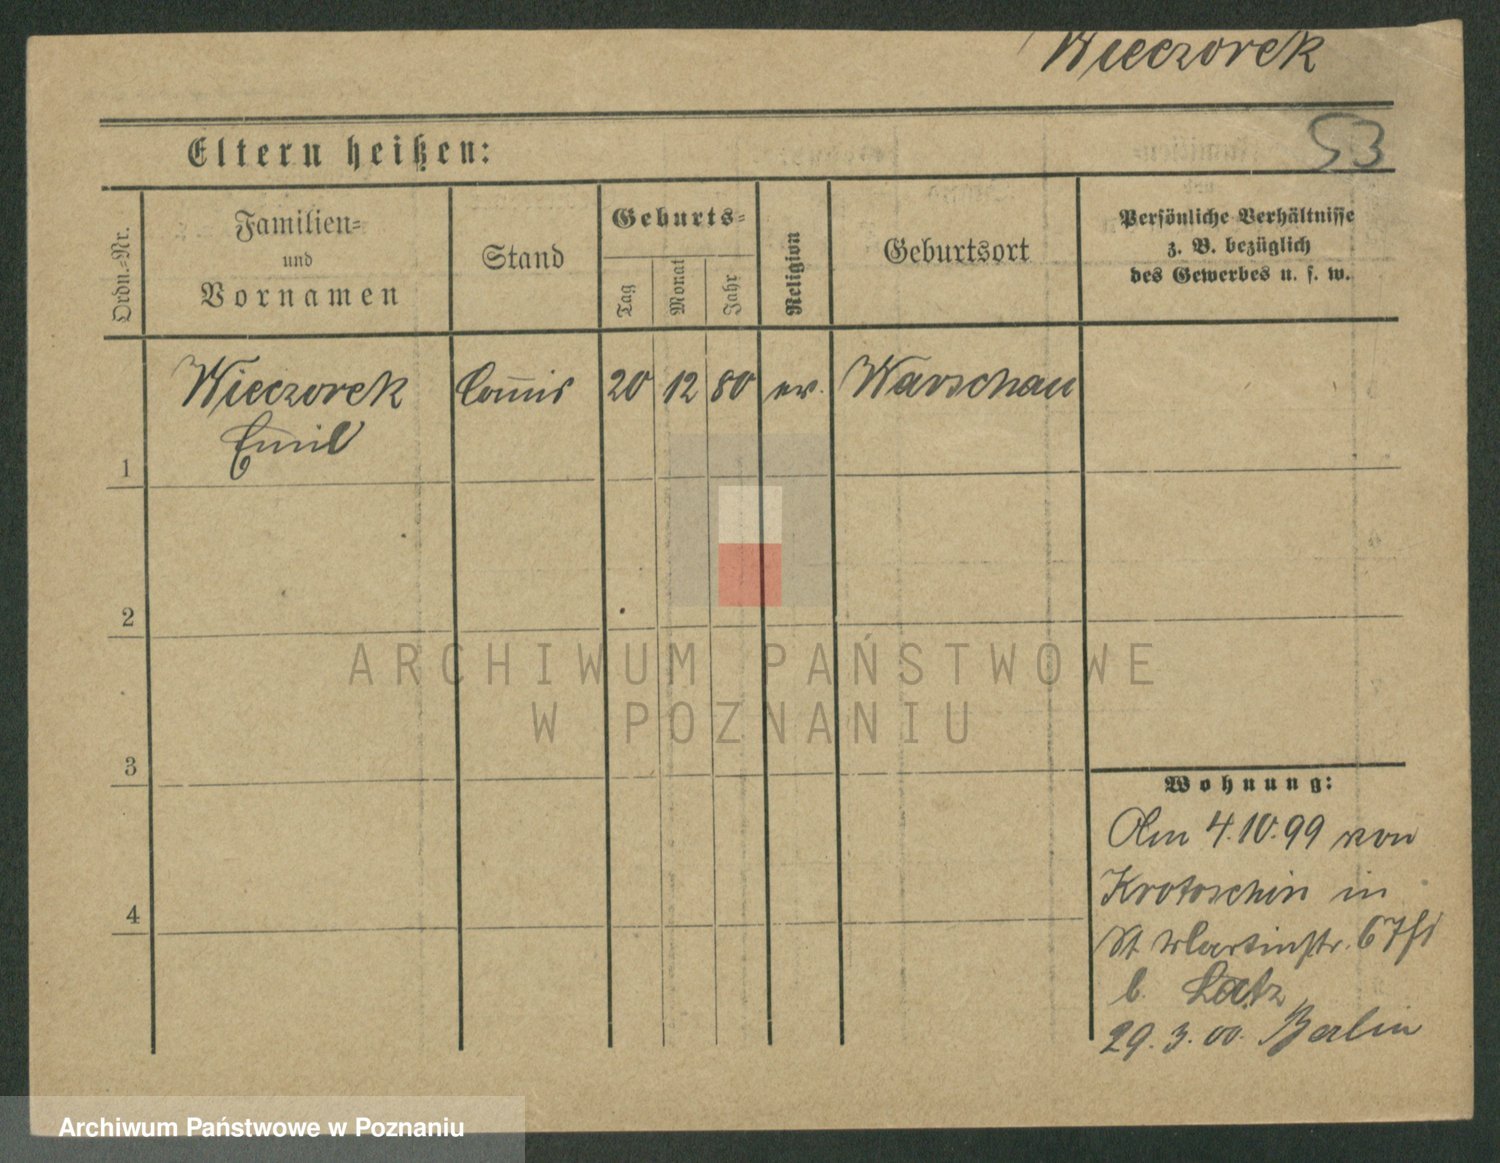 Wieczorek
53
Eltern heißen:
Ordn.-Nr.
Familien-
und
Vornamen
Stand
Geburts-
Tag
Monat
Jahr
Religion
Geburtsort
Persönliche Verhältnisse
z. B. bezüglich
des Gewerbes u. s. w.
Wieczorek Com̄is 20 12 80 ev. Warschau
Emil
1
2
3
4
ARCHIWUM PAŃSTWOWE
W POZNANIU
Wohnung:
Am 4.10.99 von
Krotoschin in
St Martinstr. 67
b. Latz
29.3.00. Berlin
Archiwum Państwowe w Poznaniu